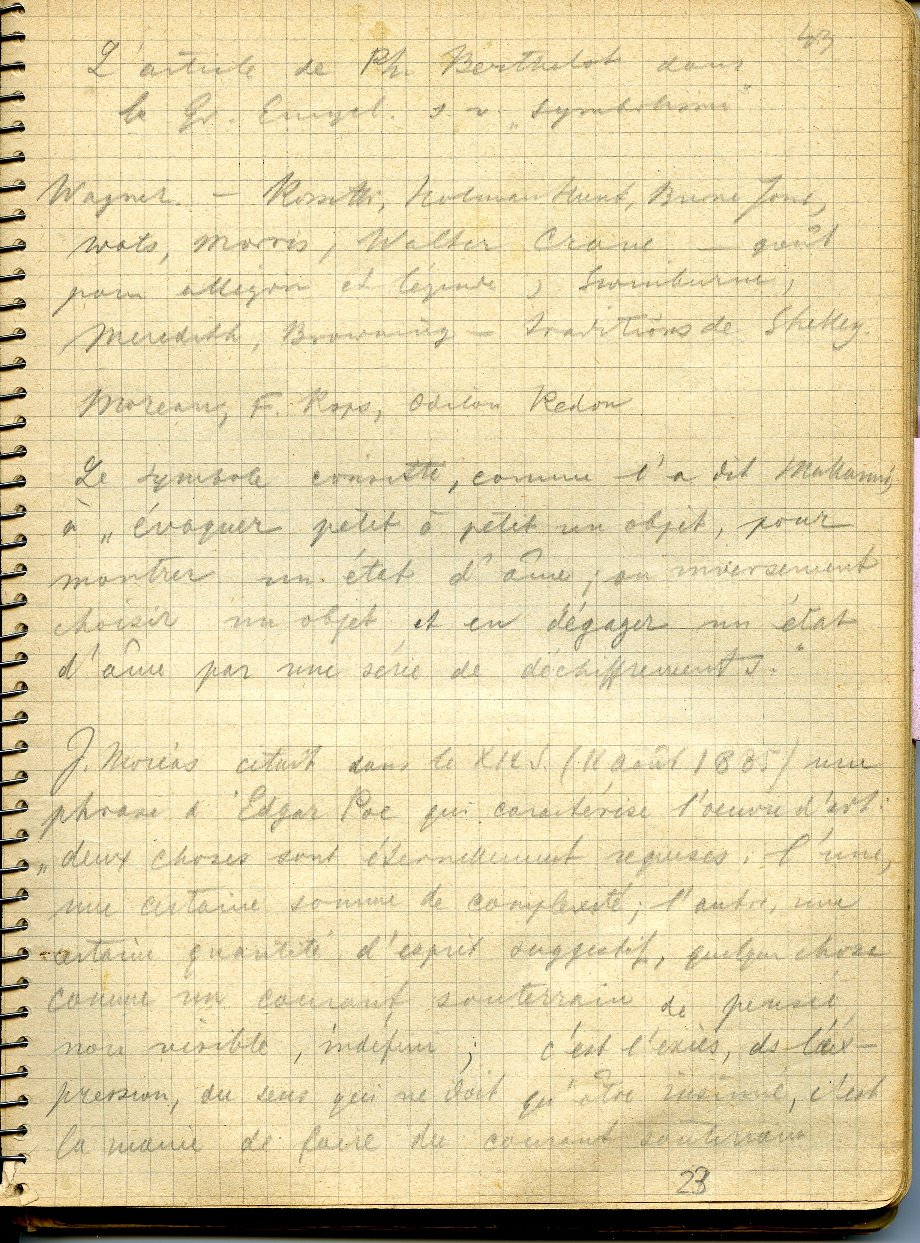 43
L'article de Ph. Berthelot dans
la Gr. Encycl. s. v. „symbolisme"
Wagner. – Rossetti, Holman Hunt, Burne Jones,
Wats, Morris, Walter Crane – goût
pour allégorie et légende, Swinburne,
Meredith, Browning – traditions de Shelley.
Moreau, F. Rops, Odilon Redon
Le symbole consiste, comme l'a dit Mallarmé,
à „évoquer petit à petit un objet, pour
montrer un état d'âme; ou inversement
choisir un objet et en dégager un état
d'âme par une série de déchiffrements."
J. Moréas citait dans le XIX S. (11 août 1885) une
phrase d'Edgar Poe qui caractérise l'oeuvre d'art:
„deux choses sont éternellement requises: l'une,
une certaine somme de complexité; l'autre, une
certaine quantité d'esprit suggestif, quelque chose
comme un courant souterrain de pensée,
non visible, indéfini; c'est l'excès, ds l'ex-
pression, du sens qui ne doit qu'être insinué, c'est
la manie de faire du courant souterrain
23